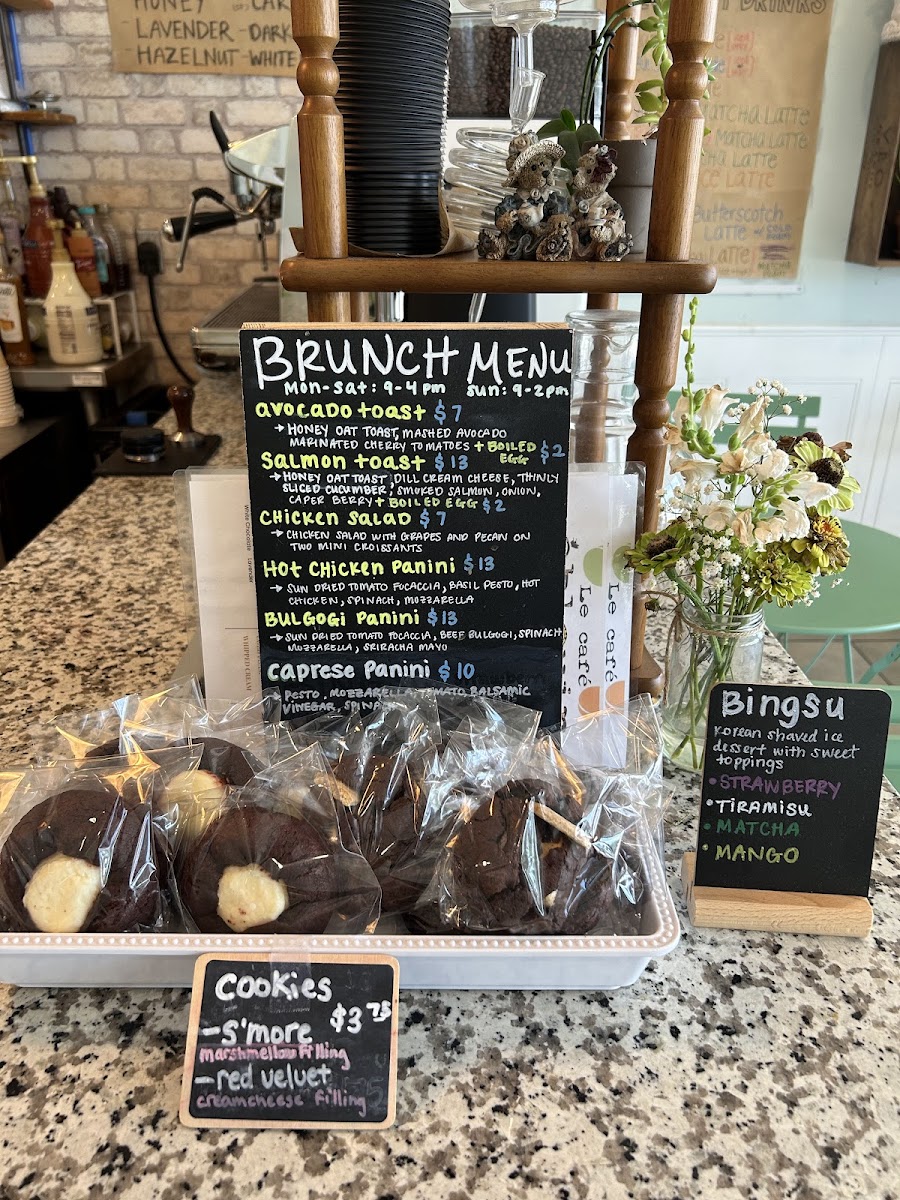 HONEY
LAVENDER - DARK
HAZELNUT - WHITE
DRINKS
MATCHA LATTE
MATCHA LATTE
LATTE
LATTE
Butterscotch
LATTE
Latte
BRUNCH MENU
MON-SAT: 9-4 PM SUN: 9-2PM
avocado toast $7
→ HONEY OAT TOAST, MASHED AVOCADO
MARINATED CHERRY TOMATOES + BOILED EGG $2
Salmon toast $13
→ HONEY OAT TOAST, DILL CREAM CHEESE, THINLY
SLICED CUCUMBER, SMOKED SALMON, ONION,
CAPER BERRY + BOILED EGG $2
CHICKEN SALAD $7
→ CHICKEN SALAD WITH GRAPES AND PECAN ON
TWO MINI CROISSANTS
HOT CHICKEN PANINI $13
→ SUN DRIED TOMATO FOCACCIA, BASIL PESTO, HOT
CHICKEN, SPINACH, MOZZARELLA
BULGOGI PANINI $13
→ SUN DRIED TOMATO FOCACCIA, BEEF BULGOGI, SPINACH
MOZZARELLA, SRIRACHA MAYO
Caprese Panini $10
→ PESTO, MOZZARELLA, TOMATO, BALSAMIC
VINEGAR, SPINACH
White Chocolate
Lavender
WHIPPED CREAM
Le café
Le café
Bingsu
Korean shaved ice
dessert with sweet
toppings
• STRAWBERRY
• TIRAMISU
• MATCHA
• MANGO
Cookies
$3.75
- S'more
marshmellow filling
- red velvet
creamcheese filling